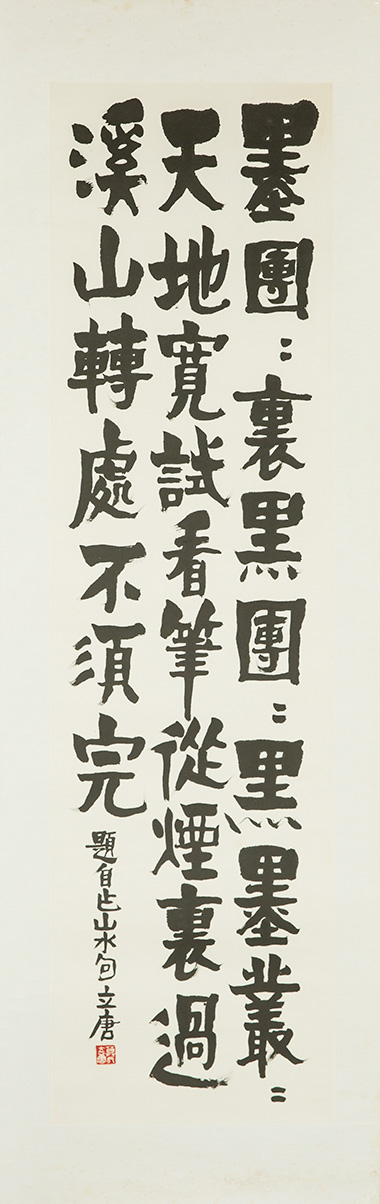 墨團〻裏黑團〻黑墨叢〻
天地寬試看筆從煙裏過
溪山轉處不須完
題自乍山水句立唐